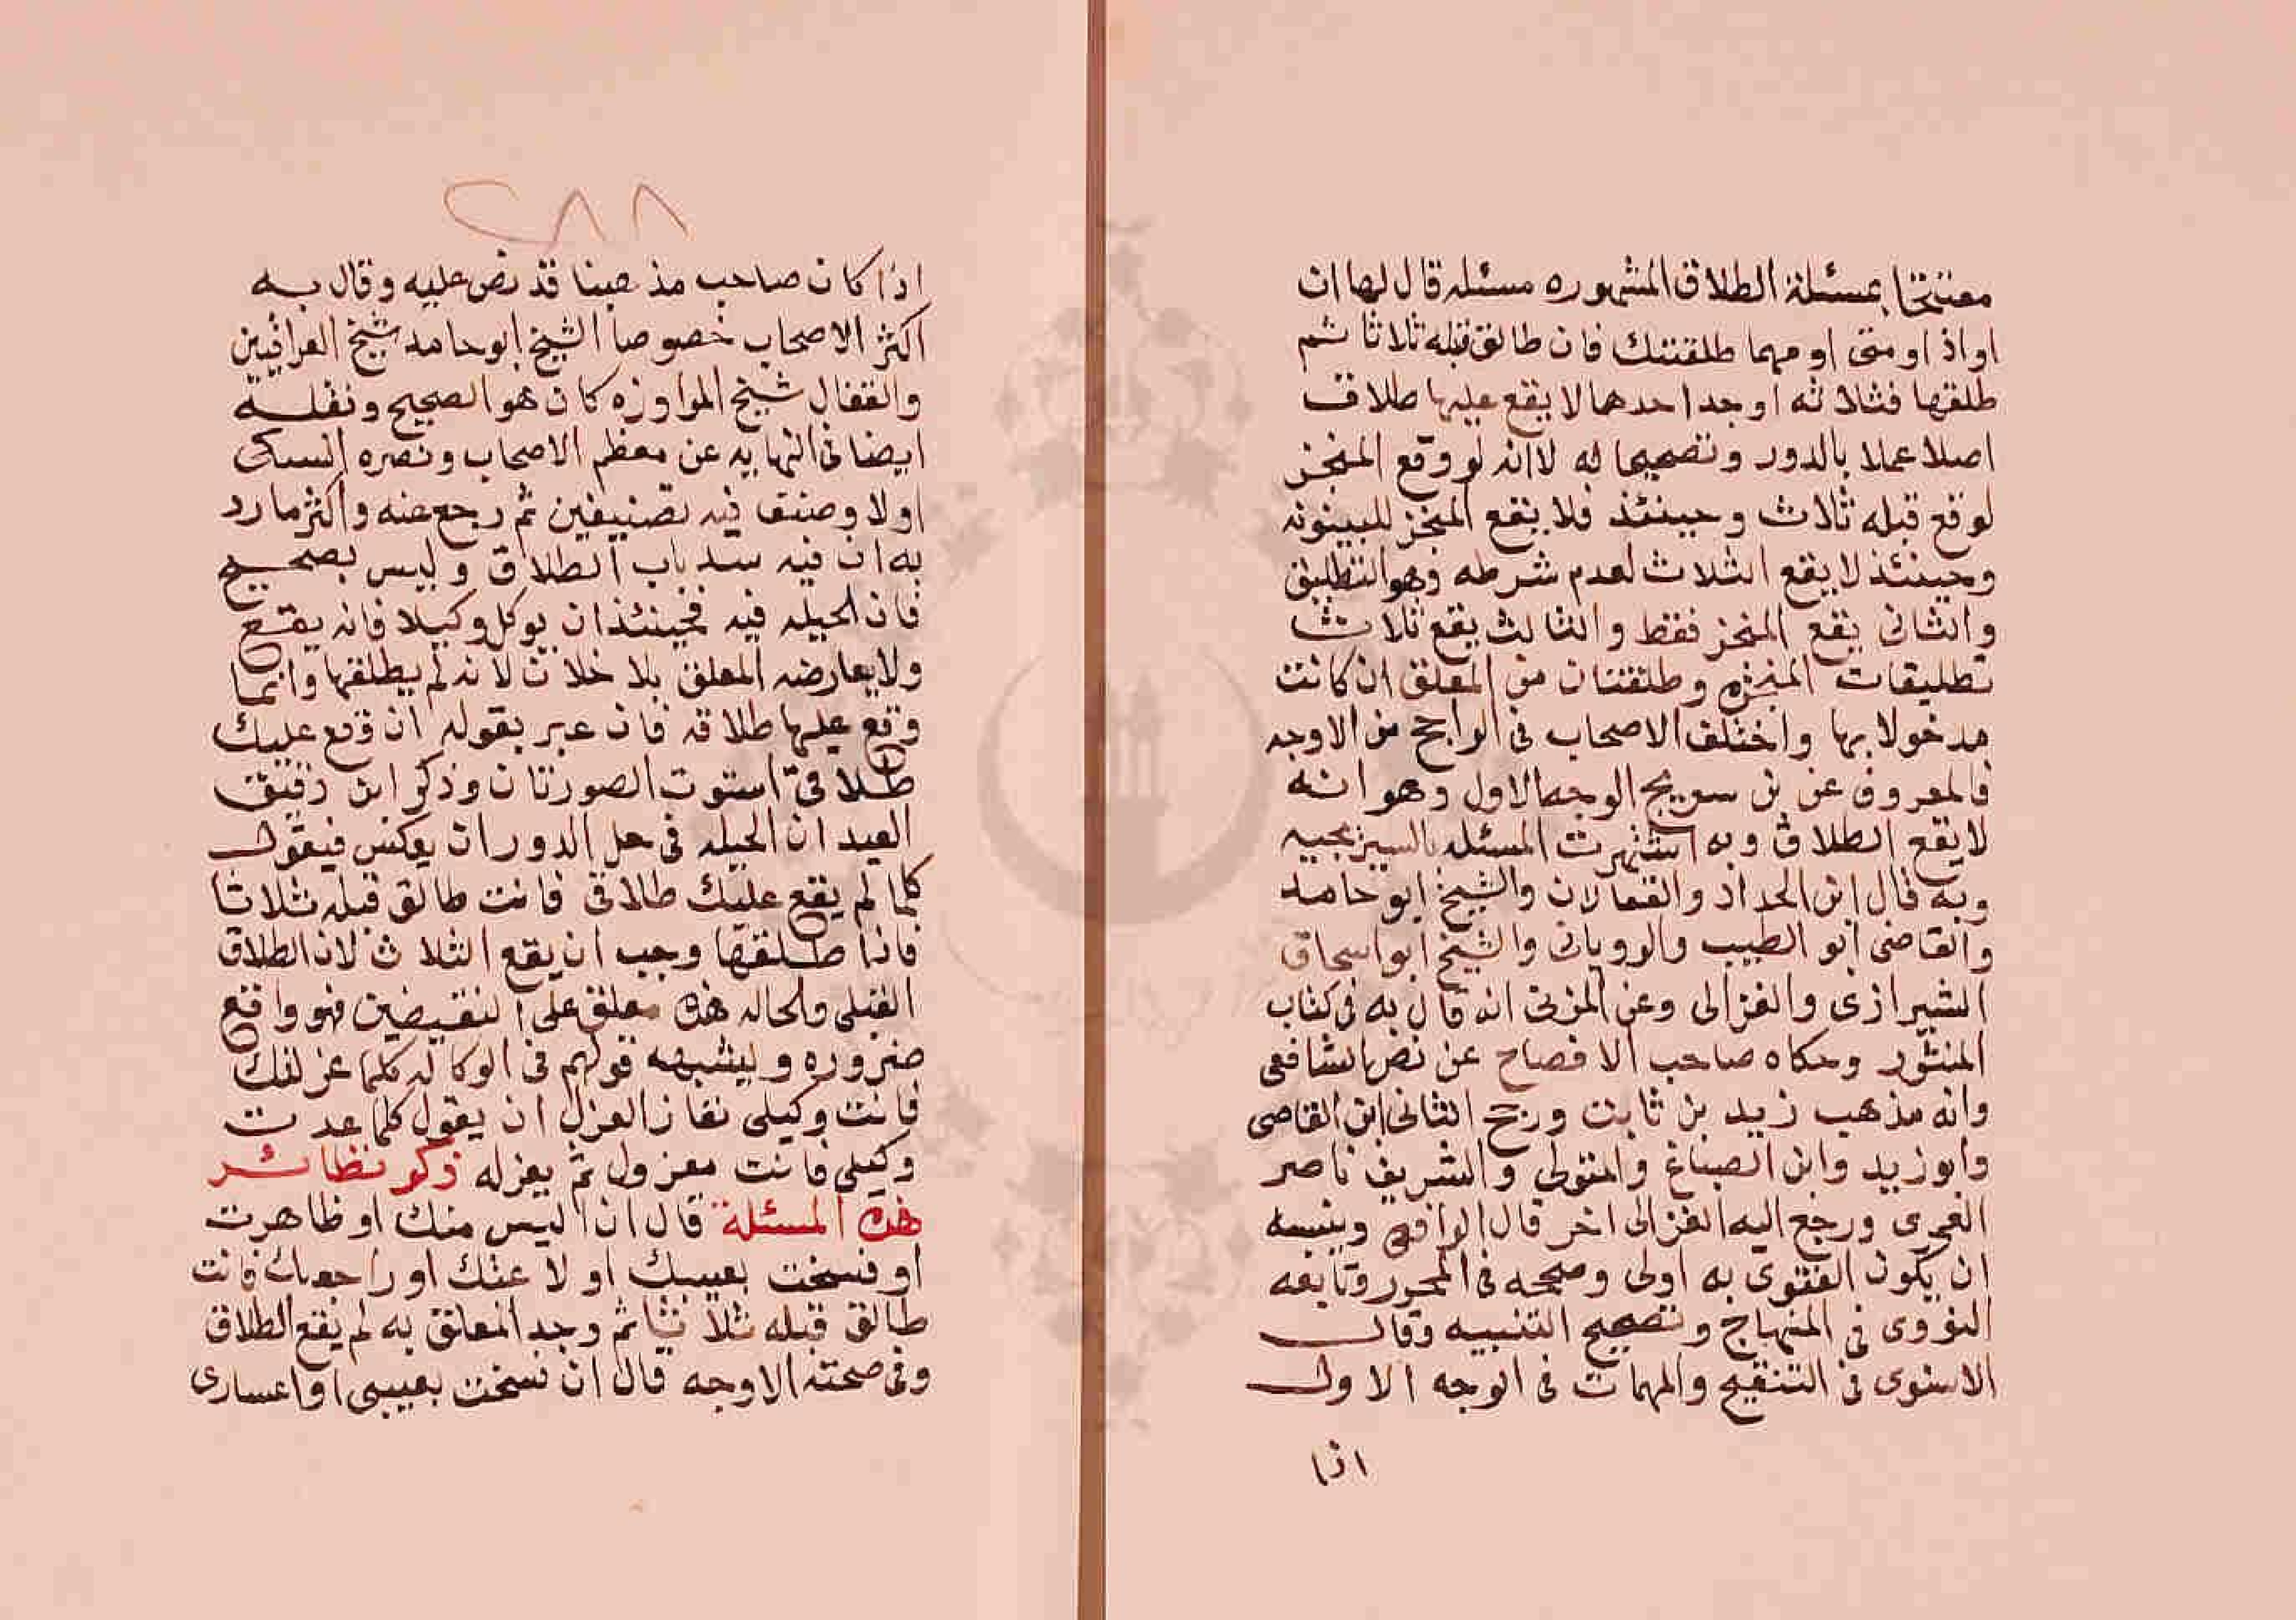 مفتتحا بمسئلة الطلاق المشهوره مسئله قال لها ان
او اذا او متى او مهما طلقتك فان طالق قبله ثلاثا ثم
طلقها فثلاثه اوجه احدهما لا يقع عليها طلاق
اصلا عملا بالدور وتصحيحا له لانه لو وقع المنجز
لوقع قبله ثلاث وحينئذ فلا يقع المنجز للبينونه
وحينئذ لا يقع الثلاث لعدم شرطه وهو التطليق
والثانى يقع المنجز فقط والثالث يقع ثلاث
تطليقات المنجزه وطلقتان من المعلق ان كانت
مدخولا بها واختلف الاصحاب فى الراجح من الاوجه
فالمعروف عن بن سريج الوجه الاول وهو انه
لا يقع الطلاق وبه اشتهرت المسئله بالسريجيه
وبه قال ابن الحداد والقفالان والشيخ ابو حامد
والقاضى ابو الطيب والرويانى والشيخ ابو اسحاق
الشيرازى والغزالى وعن المزنى انه قال به فى كتاب
المنثور وحكاه صاحب الافصاح عن نص الشافعى
وانه مذهب زيد بن ثابت ورجح الثانى ابن القاصى
وابو زيد وابن الصباغ والمتولى والشريف ناصر
العمرى ورجع اليه الغزالى اخر قال الرافعى ويشبه
ان يكون الفتوى به اولى وصححه فى المحرر وتابعه
النووى فى المنهاج وتصحيح التنبيه وقال
الاسنوى فى التنقيح والمهمات فى الوجه الاول
اذا
٢٨٨
اذا كان صاحب مذهبنا قد نص عليه وقال به
اكثر الاصحاب خصوصا الشيخ ابو حامد شيخ العراقيين
والقفال شيخ المراوزه كان هو الصحيح ونقله
ايضا فى النهايه عن معظم الاصحاب ونصره السبكى
اولا وصنف فيه تصنيفين ثم رجع عنه واكثر ما رد
به ان فيه سد باب الطلاق وليس بصحيح
فان الحيله فيه فحينئذ ان يوكل وكيلا فانه يقع
ولا يعارضه المعلق بلا خلاف لانه لم يطلقها وانما
وقع عليها طلاقه فان عبر بقوله ان وقع عليك
طلاقى استوت الصورتان وذكر ابن دقيق
العيد ان الحيله فى حل الدور ان يعكس فيقول
كلما لم يقع عليك طلاقى فانت طالق قبله ثلاثا
فاذا طلقها وجب ان يقع الثلاث لان الطلاق
القبلى والحاله هذه معلق على النقيضين فهو واقع
ضروره ويشبهه قولهم فى الوكاله كلما عزلتك
فانت وكيلى نفاذ العزل ان يقول كلما عدت
وكيلى فانت معزول ثم يعزله ذكر نظائر
هذه المسئلة قال ان اليس منك او ظاهرت
او فسخت بعيبك او لاعنتك او راجعتك فانت
طالق قبله ثلاثا ثم وجد المعلق به لم يقع الطلاق
وفى صحته الاوجه قال ان فسخت بعيبى او اعسارى